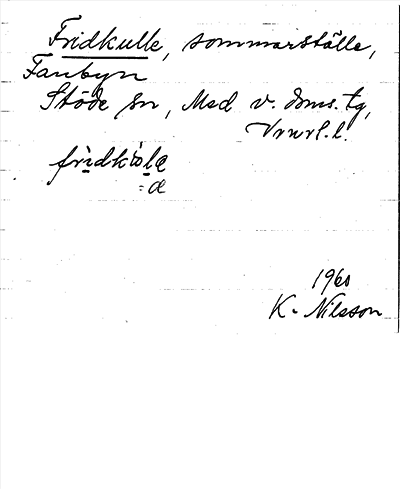 Fridkulle, sommarställe,
Fanbyn
Stöde sn, Med v. doms. tg,
Vrwrl. l.
fridkɯlæ
= a
1960
K. Nilsson